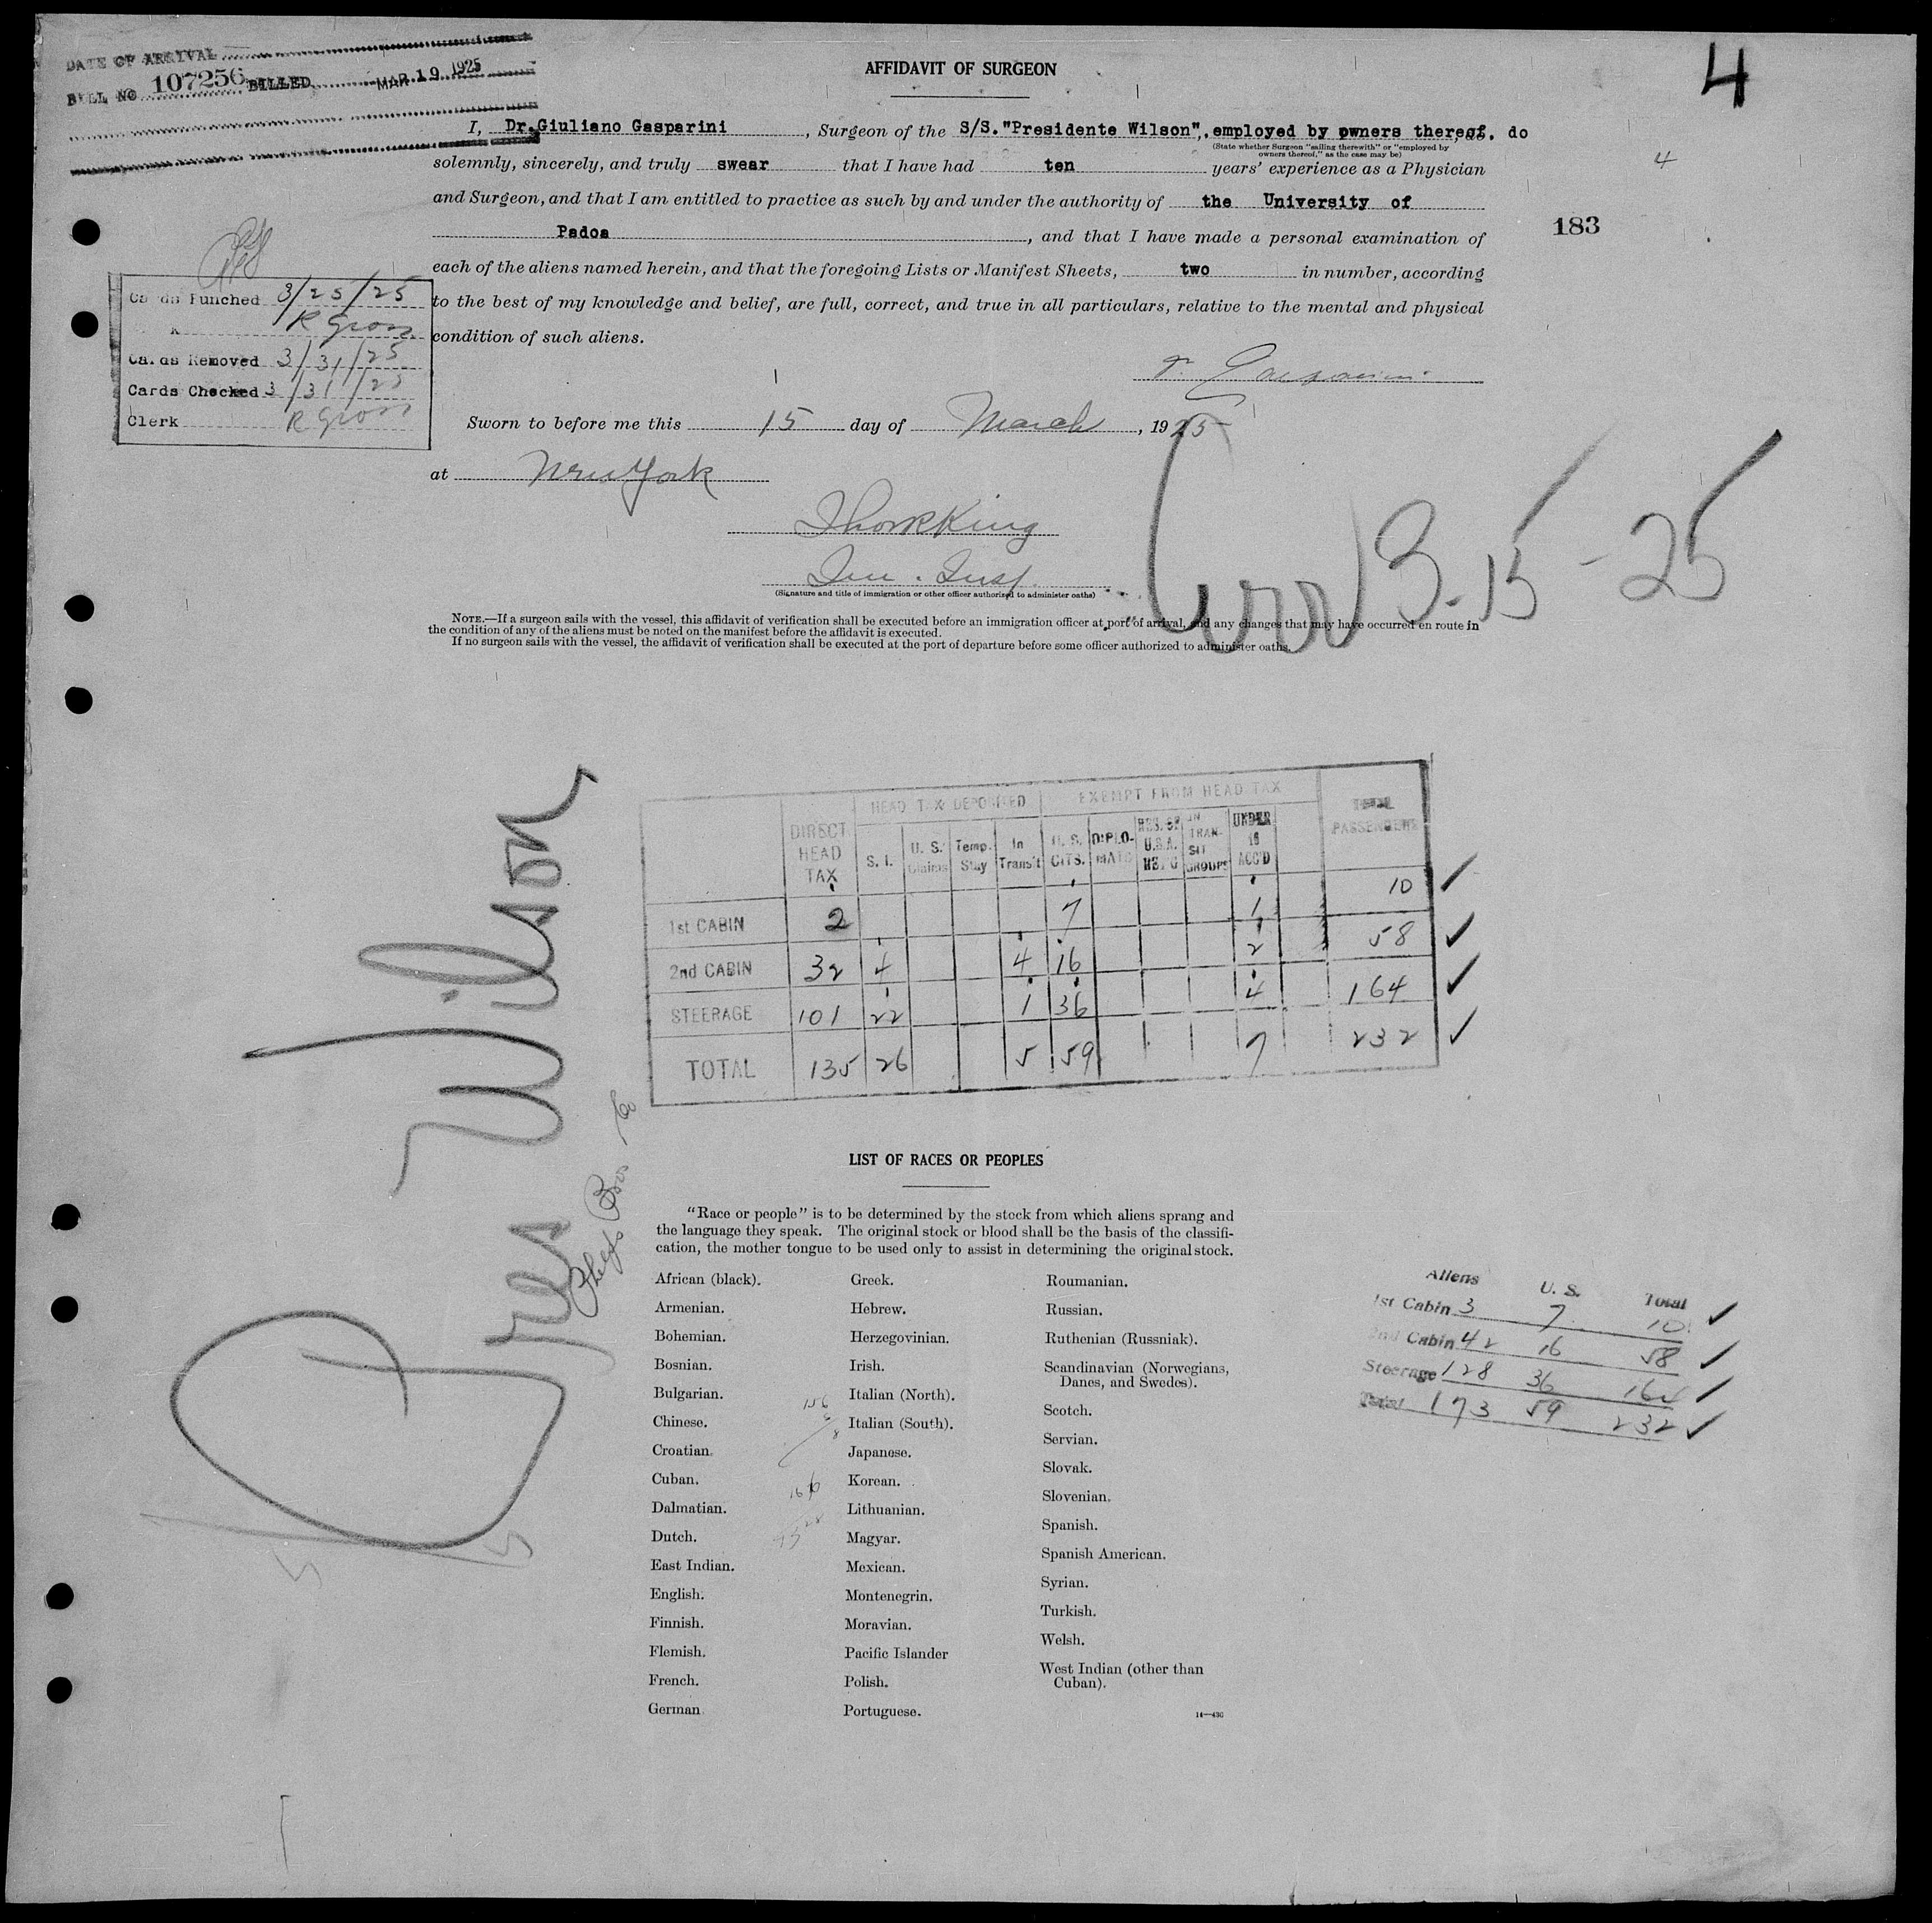 DATE OF ARRIVAL
BILL NO 107256 BILLED MAR 19 1925
4
AFFIDAVIT OF SURGEON
I, Dr. Giuliano Gasparini, Surgeon of the S/S. "Presidente Wilson", employed by owners thereof, do
(State whether Surgeon "sailing therewith" or "employed by
owners thereof," as the case may be)
solemnly, sincerely, and truly swear that I have had ten years' experience as a Physician
4
and Surgeon, and that I am entitled to practice as such by and under the authority of the University of
Padoa, and that I have made a personal examination of
183
each of the aliens named herein, and that the foregoing Lists or Manifest Sheets, two in number, according
to the best of my knowledge and belief, are full, correct, and true in all particulars, relative to the mental and physical
condition of such aliens.
Cards Punched 3/25/25
R Gross
Cards Removed 3/31/25
Cards Checked 3/31/25
Clerk R Gross
Gasparini
Sworn to before me this 15 day of March, 1925
at New York
King
Imm. Insp.
(Signature and title of immigration or other officer authorized to administer oaths)
3-15-25
NOTE.—If a surgeon sails with the vessel, this affidavit of verification shall be executed before an immigration officer at port of arrival, and any changes that may have occurred en route in
the condition of any of the aliens must be noted on the manifest before the affidavit is executed.
If no surgeon sails with the vessel, the affidavit of verification shall be executed at the port of departure before some officer authorized to administer oaths.
Pres Wilson
Phelps Bros & Co
HEAD TAX DEPOSITED EXEMPT FROM HEAD TAX
DIRECT HEAD TAX S. I. U. S. Claims Temp. Stay In Transit U. S. CITS. DIPLOMATS RES. OF U.S.A. IN TRANSIT GROUPS UNDER 16 ACC'D TOTAL PASSENGERS
1st CABIN 2 7 1 10
2nd CABIN 32 4 4 16 2 58
STEERAGE 101 22 1 36 4 164
TOTAL 135 26 5 59 7 232
LIST OF RACES OR PEOPLES
"Race or people" is to be determined by the stock from which aliens sprang and
the language they speak. The original stock or blood shall be the basis of the classifi-
cation, the mother tongue to be used only to assist in determining the original stock.
African (black).
Armenian.
Bohemian.
Bosnian.
Bulgarian.
Chinese.
Croatian.
Cuban.
Dalmatian.
Dutch.
East Indian.
English.
Finnish.
Flemish.
French.
German.
156
Greek.
Hebrew.
Herzegovinian.
Irish.
Italian (North).
Italian (South).
Japanese.
Korean.
Lithuanian.
Magyar.
Mexican.
Montenegrin.
Moravian.
Pacific Islander
Polish.
Portuguese.
Roumanian.
Russian.
Ruthenian (Russniak).
Scandinavian (Norwegians,
Danes, and Swedes).
Scotch.
Servian.
Slovak.
Slovenian.
Spanish.
Spanish American.
Syrian.
Turkish.
Welsh.
West Indian (other than
Cuban).
14—430
Aliens U. S. Total
1st Cabin 3 7 10
2nd Cabin 42 16 58
Steerage 128 36 164
Total 173 59 232